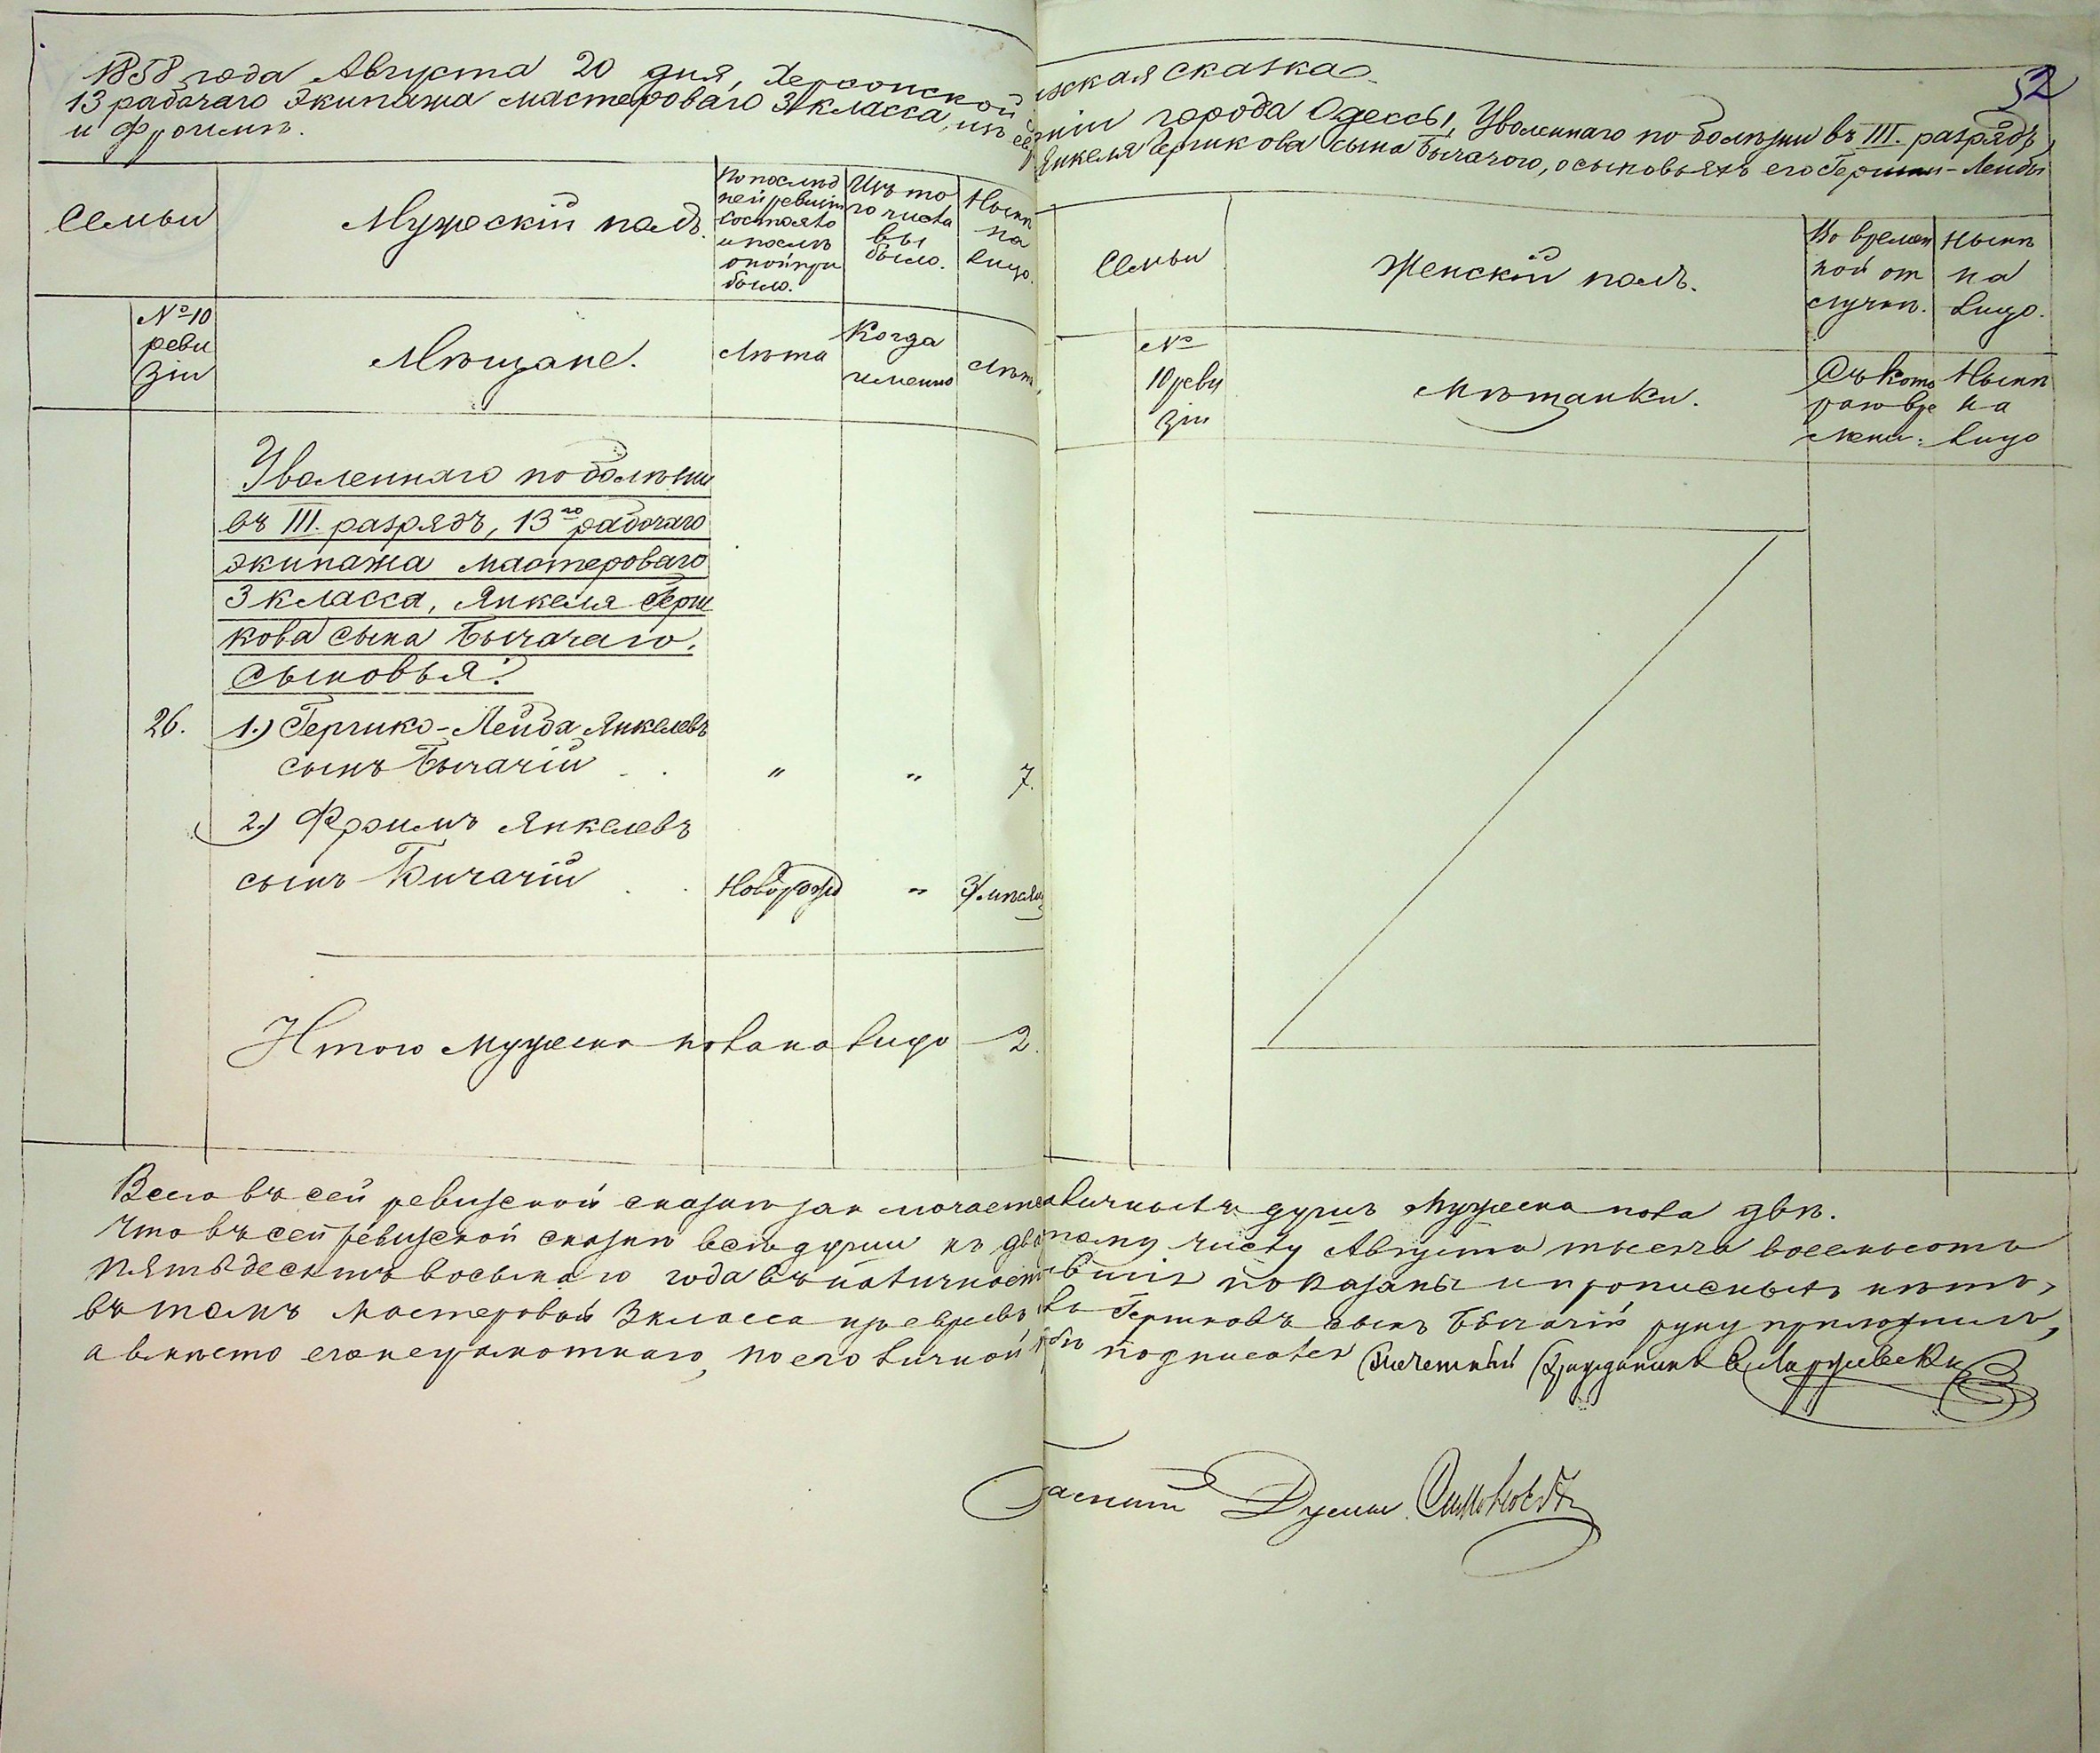 52
ская сказка
1858 года Августа 20 дня, Херсонской губерніи города Одессы, Уволеннаго по болѣзни въ III. разрядъ,
13 рабочаго Экипажа мастероваго 3 класса, изъ Янкеля Гершкова сына Бычачого, о сыновьяхъ его Гершки-Лейбы
и Фроимъ.
Семьи
Мужескій полъ.
По послѣд
ней ревизіи
состояло
и послѣ
оной при
было.
Изъ то
го числа
вы
было.
Нынѣ
на
лицо.
№ 10
реви
зіи
Мѣщане.
Лѣта
Когда
именно
Лѣта
Уволеннаго по болѣзни
въ III. разрядъ, 13го рабочаго
экипажа мастероваго
3 класса, Янкеля Герш
кова сына Бычачаго.
Сыновья:
26. 1.) Гершко-Лейба Янкелевъ
сынъ Бычачій . . " " 7.
2.) Фроимъ Янкелевъ
сынъ Бичачій . . Новорожд " 3/мѣсяц
Итого мужеска пола на лицо 2.
Семьи
Женскій полъ.
Во времен
ной от
лучкѣ.
Нынѣ
на
лицо.
№
10 реви
зіи
Мѣщанки.
Съ кото
раго вре
мени:
Нынѣ
на
лицо
Всего въ сей ревизской сказкѣ заключается наличныхъ душъ Мужеска пола двѣ.
Что въ сей ревизской сказкѣ всѣ души къ двадцатому числу Августа тысяча восемьсотъ
пятьдесятъ восьмаго года въ наличности бывшіе показаны и прописныхъ нѣтъ,
въ томъ мастеровой 3 класса изъ евреевъ Гершковъ сынъ Бычачій руку приложилъ,
а вмѣсто его неграмотнаго, по его личной прозьбѣ подписался Почетный Гражданинъ
Гласный Думы